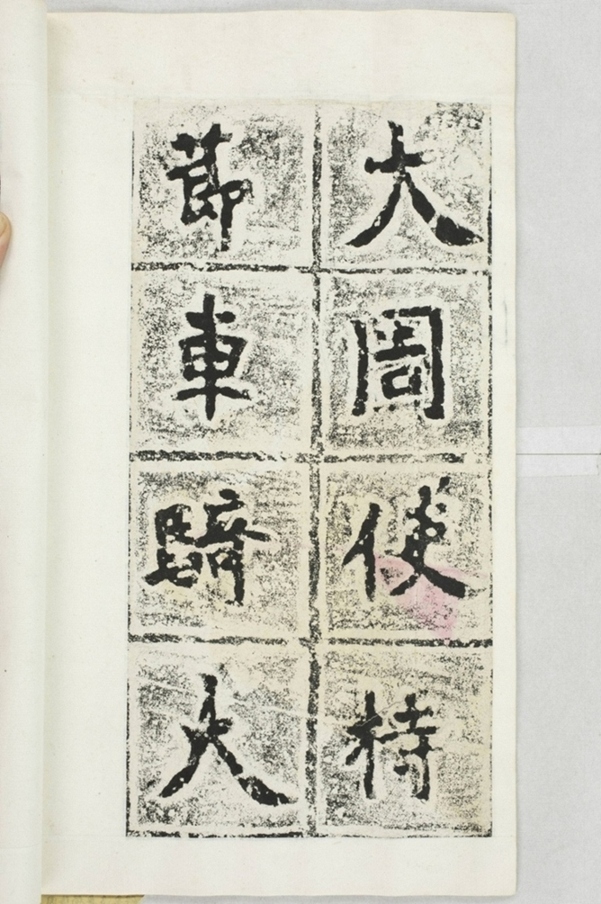 大周使持
節車騎大